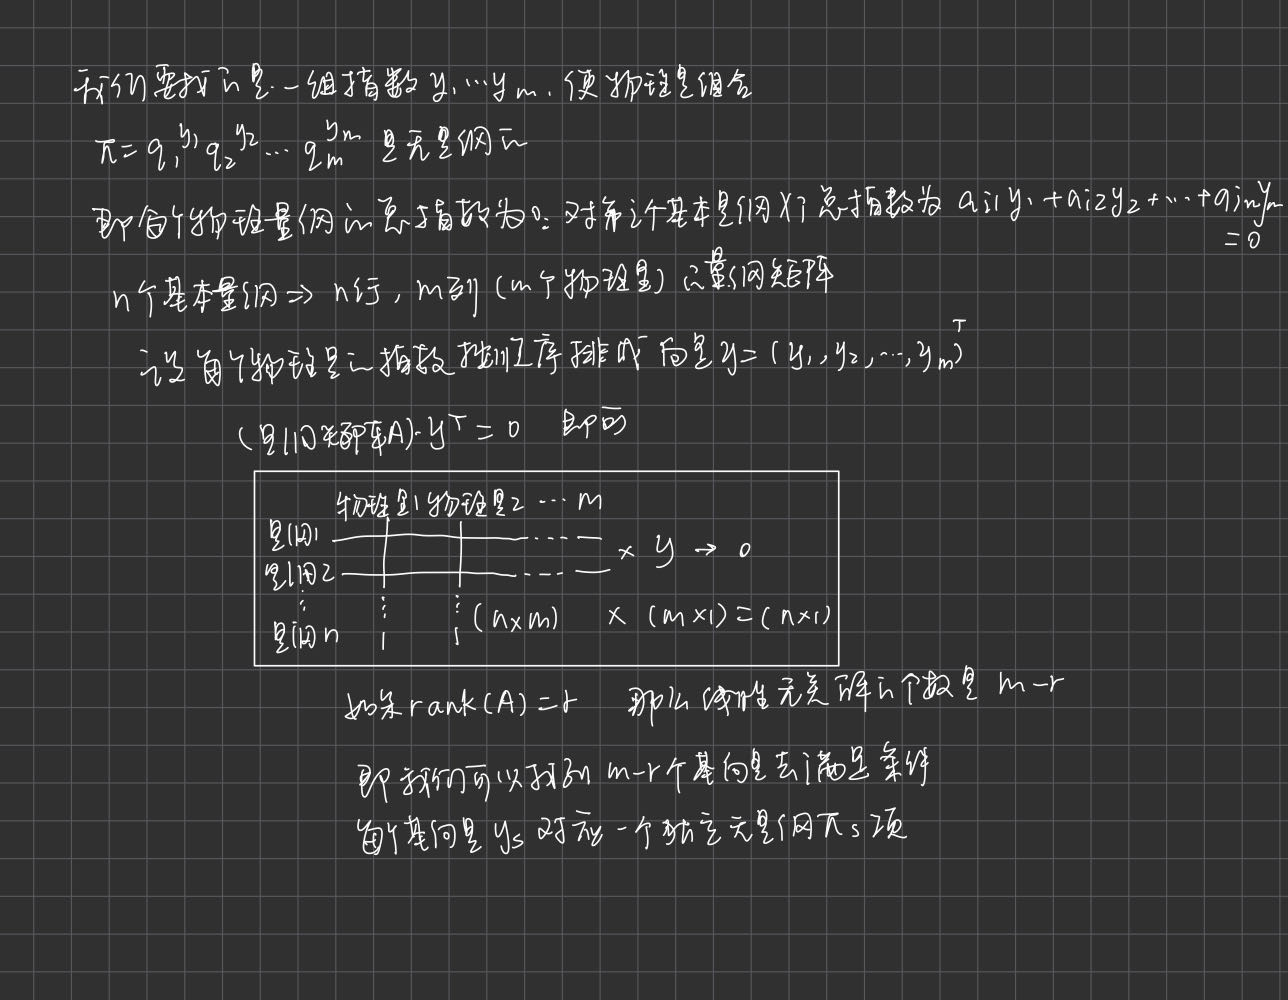 我们要找的是一组指数 y₁…yₘ. 使物理量组合
π = q₁^y₁ q₂^y₂ … qₘ^yₘ 是无量纲的
即每个物理量纲的总指数为0. 对第i个基本量纲Xi 总指数为 aᵢ₁y₁+aᵢ₂y₂+…+aᵢₘyₘ
=0
n个基本量纲 ⇒ n行, m列 (m个物理量) 的量纲矩阵
设每个物理量的指数按顺序排成向量 y=(y₁,y₂,…,yₘ)ᵀ
(量纲矩阵A)·yᵀ=0 即可
物理量1 物理量2 … m
量纲1
× y → 0
量纲2
⋮
量纲n
(n×m) × (m×1)=(n×1)
如果rank(A)=r 那么线性无关解的个数是 m-r
即我们可以找到 m-r个基向量去满足条件
每个基向量 yₛ 对应一个独立无量纲πₛ项